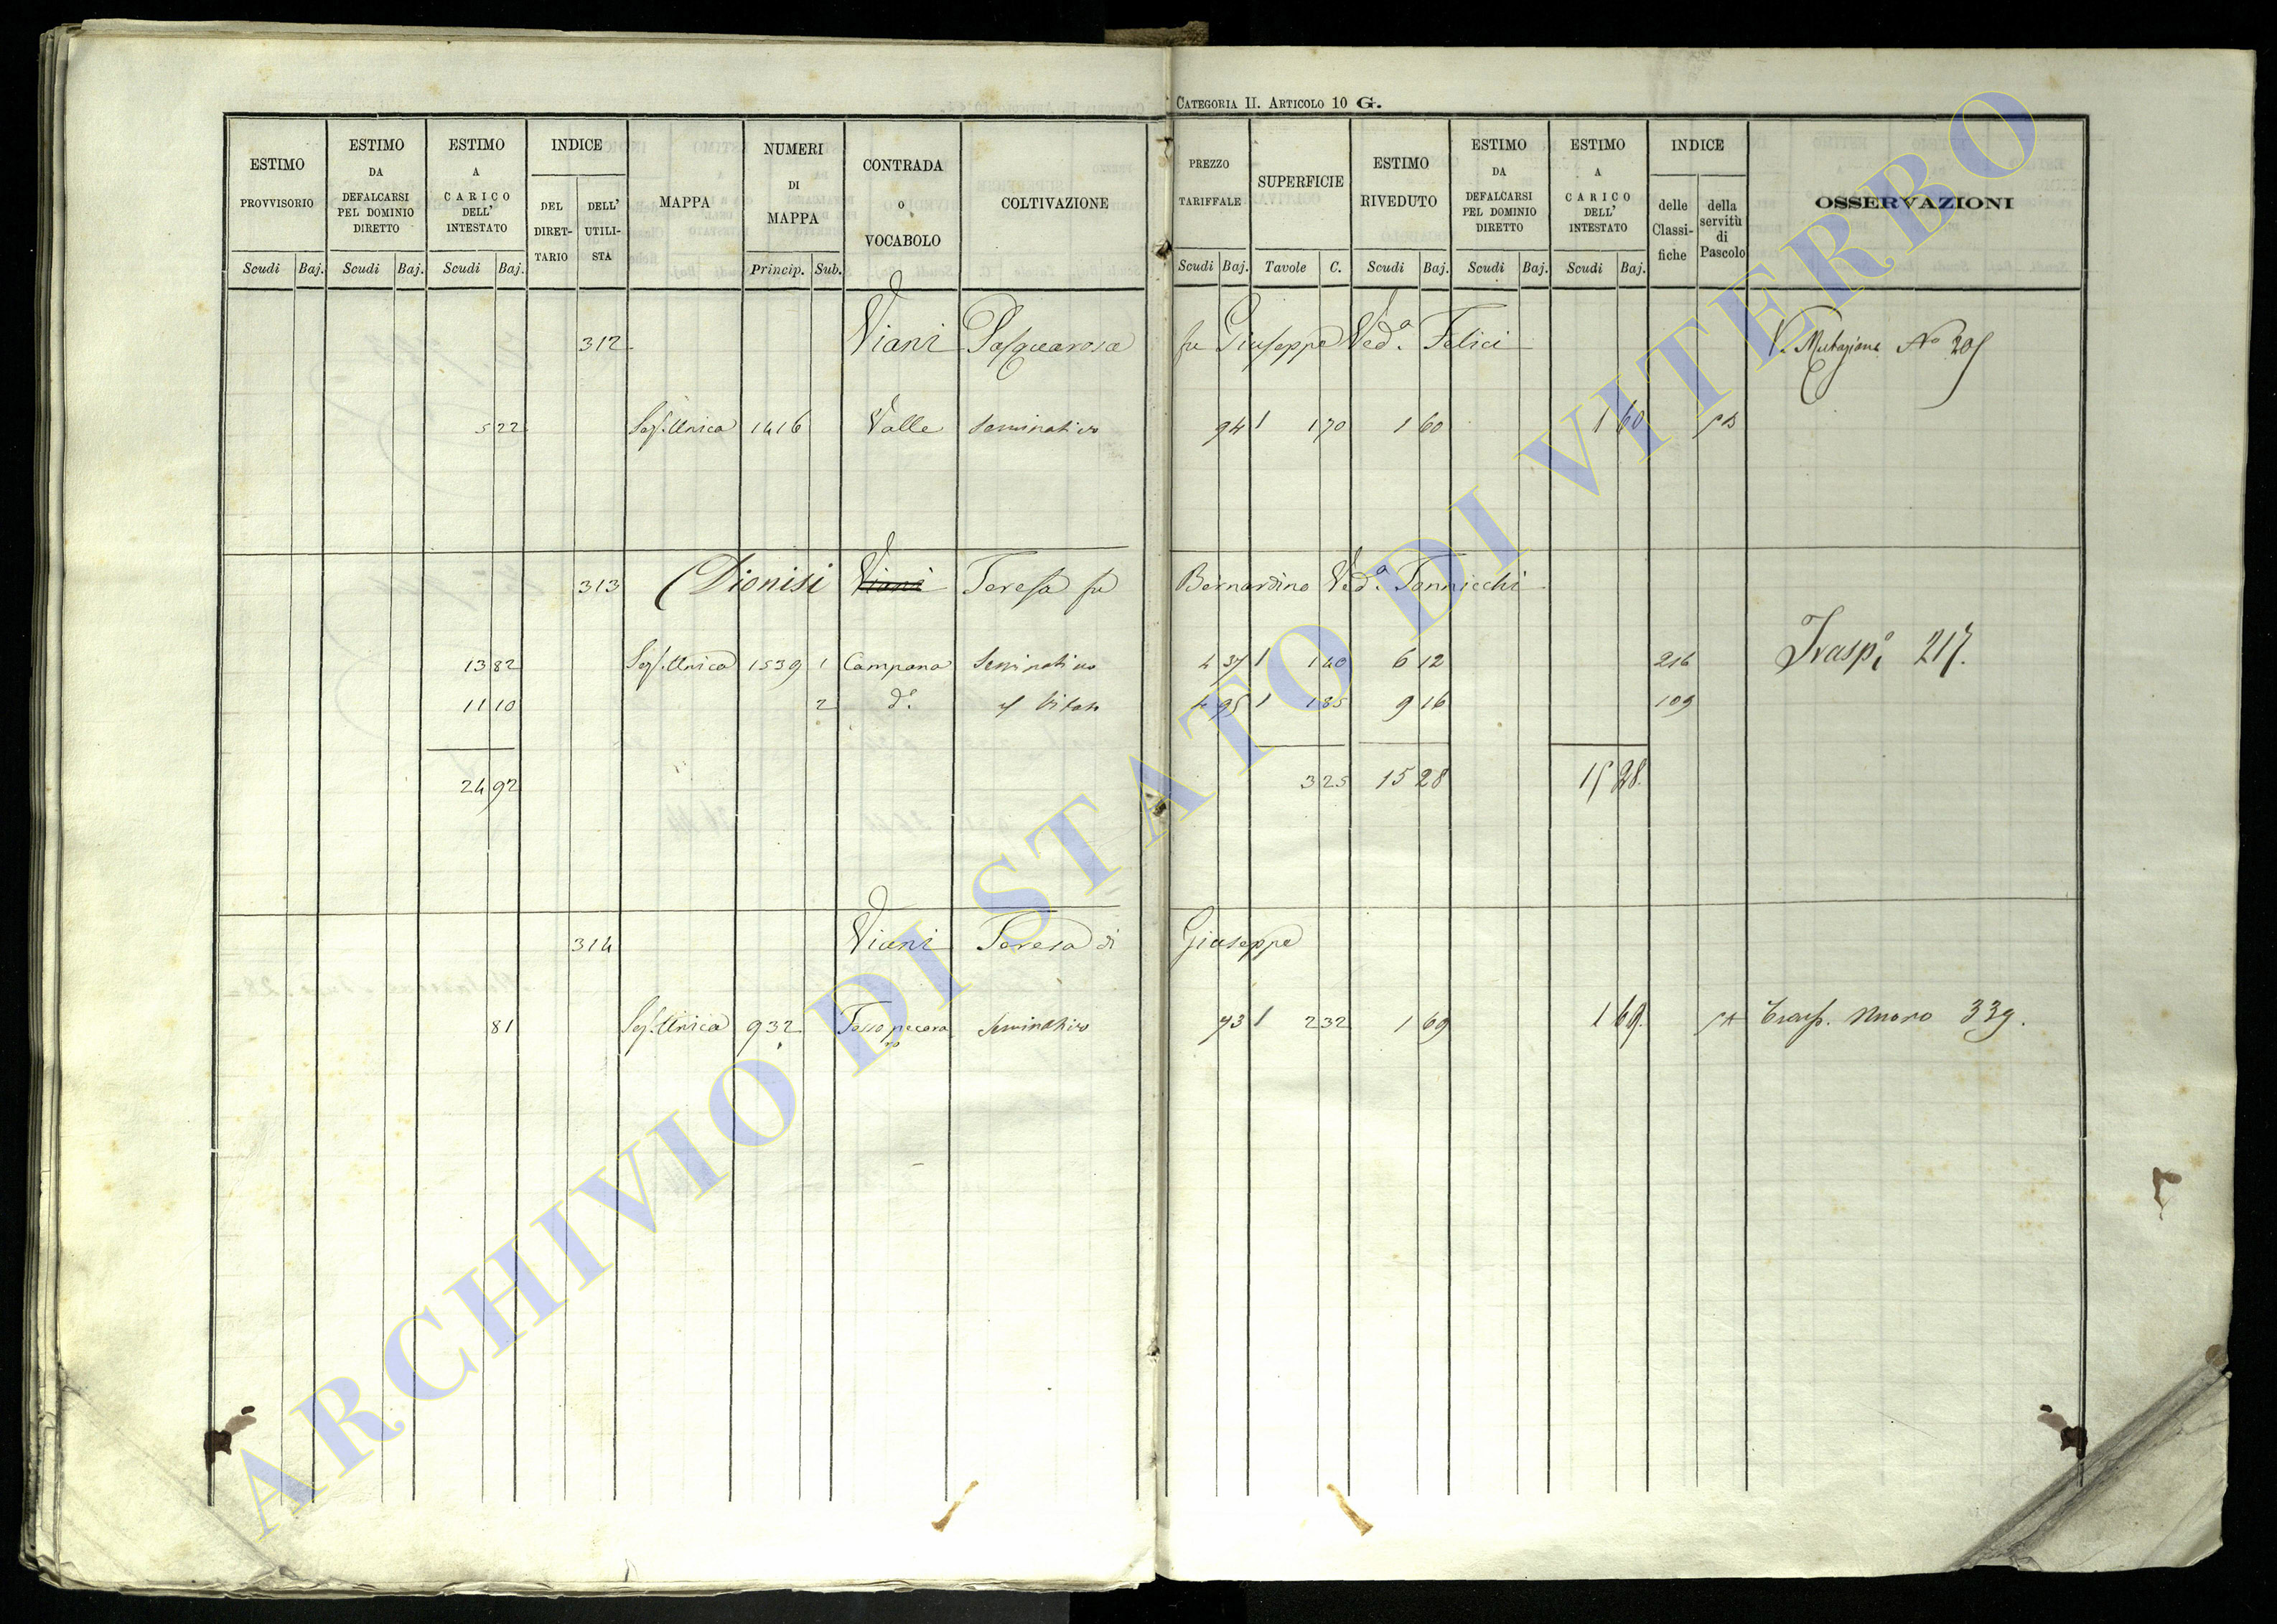 CATEGORIA II. ARTICOLO 10 G.
ESTIMO PROVVISORIO
ESTIMO DA DEFALCARSI PEL DOMINIO DIRETTO
ESTIMO A CARICO DELL' INTESTATO
INDICE
DEL DIRETTARIO
DELL' UTILISTA
MAPPA
NUMERI DI MAPPA
CONTRADA O VOCABOLO
COLTIVAZIONE
PREZZO TARIFFALE
SUPERFICIE
ESTIMO RIVEDUTO
ESTIMO DA DEFALCARSI PEL DOMINIO DIRETTO
ESTIMO A CARICO DELL' INTESTATO
INDICE
delle Classifiche
della servitù di Pascolo
OSSERVAZIONI
Scudi Baj. Scudi Baj. Scudi Baj. Princip. Sub. Scudi Baj. Tavole C. Scudi Baj. Scudi Baj. Scudi Baj.
312 Viani Pasquarosa fu Giuseppe Ved.a Felici V. Mutazione No 205
5 22 Sez. Unica 1416 Valle Seminativo 94 1 1 70 1 60 1 60
313 Dionisi Viani Teresa fu Bernardino Ved.a Iannicchi
13 82 Sez. Unica 1539 1 Campana Seminativo 4 37 1 1 40 6 12 216 Trasp.o 217.
11 10 2 d.o Vitato 4 95 1 1 85 9 16 109
24 92 3 25 15 28 15 28.
314 Viani Teresa di Giuseppe
81 Sez. Unica 932 Fosso pecoraro Seminativo 73 1 2 32 1 69 1 69. Trasp. Nuovo 339.
ARCHIVIO DI STATO DI VITERBO